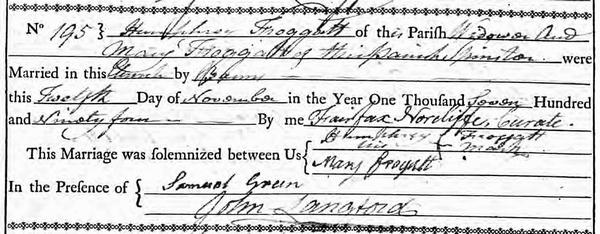 No 195 } Humphrey Froggatt of this Parish Widower and
Mary Froggatt of this Parish Spinster were
Married in this Church by Banns
this Twelfth Day of November in the Year One Thousand Seven Hundred
and Ninety four By me Fairfax Norcliffe, Curate.
This Marriage was solemnized between Us { Humphrey Froggatt
his Mark
Mary Frogatt
In the Presence of { Samuel Green
John Langford